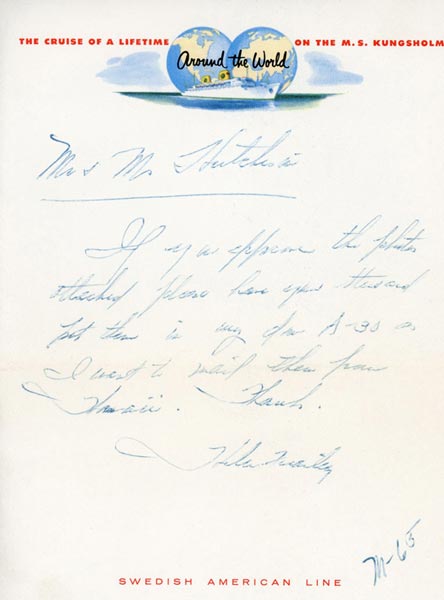 THE CRUISE OF A LIFETIME Around the World ON THE M.S. KUNGSHOLM
Mr & Mrs Hutchison
If you approve the photos
attached please have your steward
put them in my
A-30 as
I want to mail them from
Hawaii. Thanks.
Helen
M-65
SWEDISH AMERICAN LINE